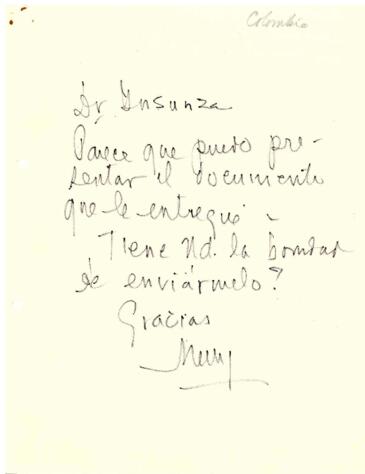 Colombia
Dr. Insunza
Parece que puedo pre-
sentar el documento
que le entregué -
Tiene Ud. la bondad
de enviármelo?
Gracias